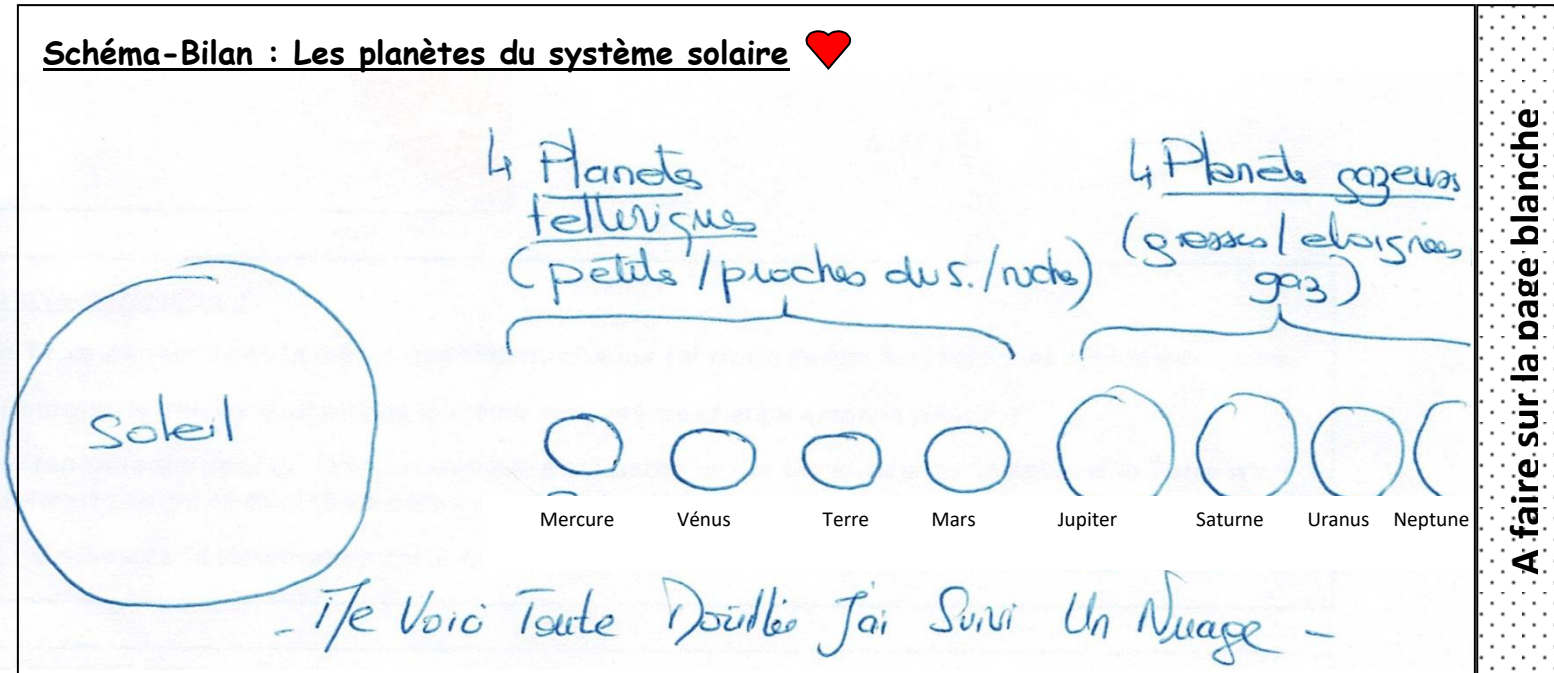 Schéma-Bilan : Les planètes du système solaire
4 Planètes
telluriques
(petites / proches du S. / roches)
4 Planètes gazeuses
(grosses / eloignées
gaz)
Soleil
Mercure Vénus Terre Mars Jupiter Saturne Uranus Neptune
- Me Voici Toute Mouillée J'ai Suivi Un Nuage -
A faire sur la page blanche